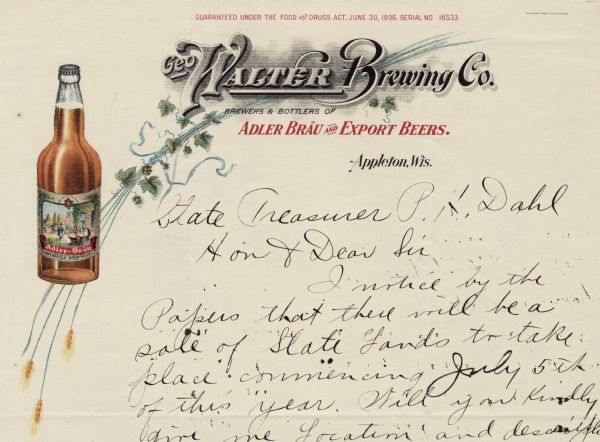 GUARANTEED UNDER THE FOOD AND DRUGS ACT, JUNE 30, 1906. SERIAL NO. 16533.
Geo Walter Brewing Co.
BREWERS & BOTTLERS OF
ADLER BRÄU AND EXPORT BEERS.
Appleton, Wis.
Adler-Bräu
State Treasurer P. K. Dahl
Hon & Dear Sir
I notice by the
Papers that there will be a
sale of State Lands to take
place commencing July 5th
of this year. Will you Kindly
give me Location and